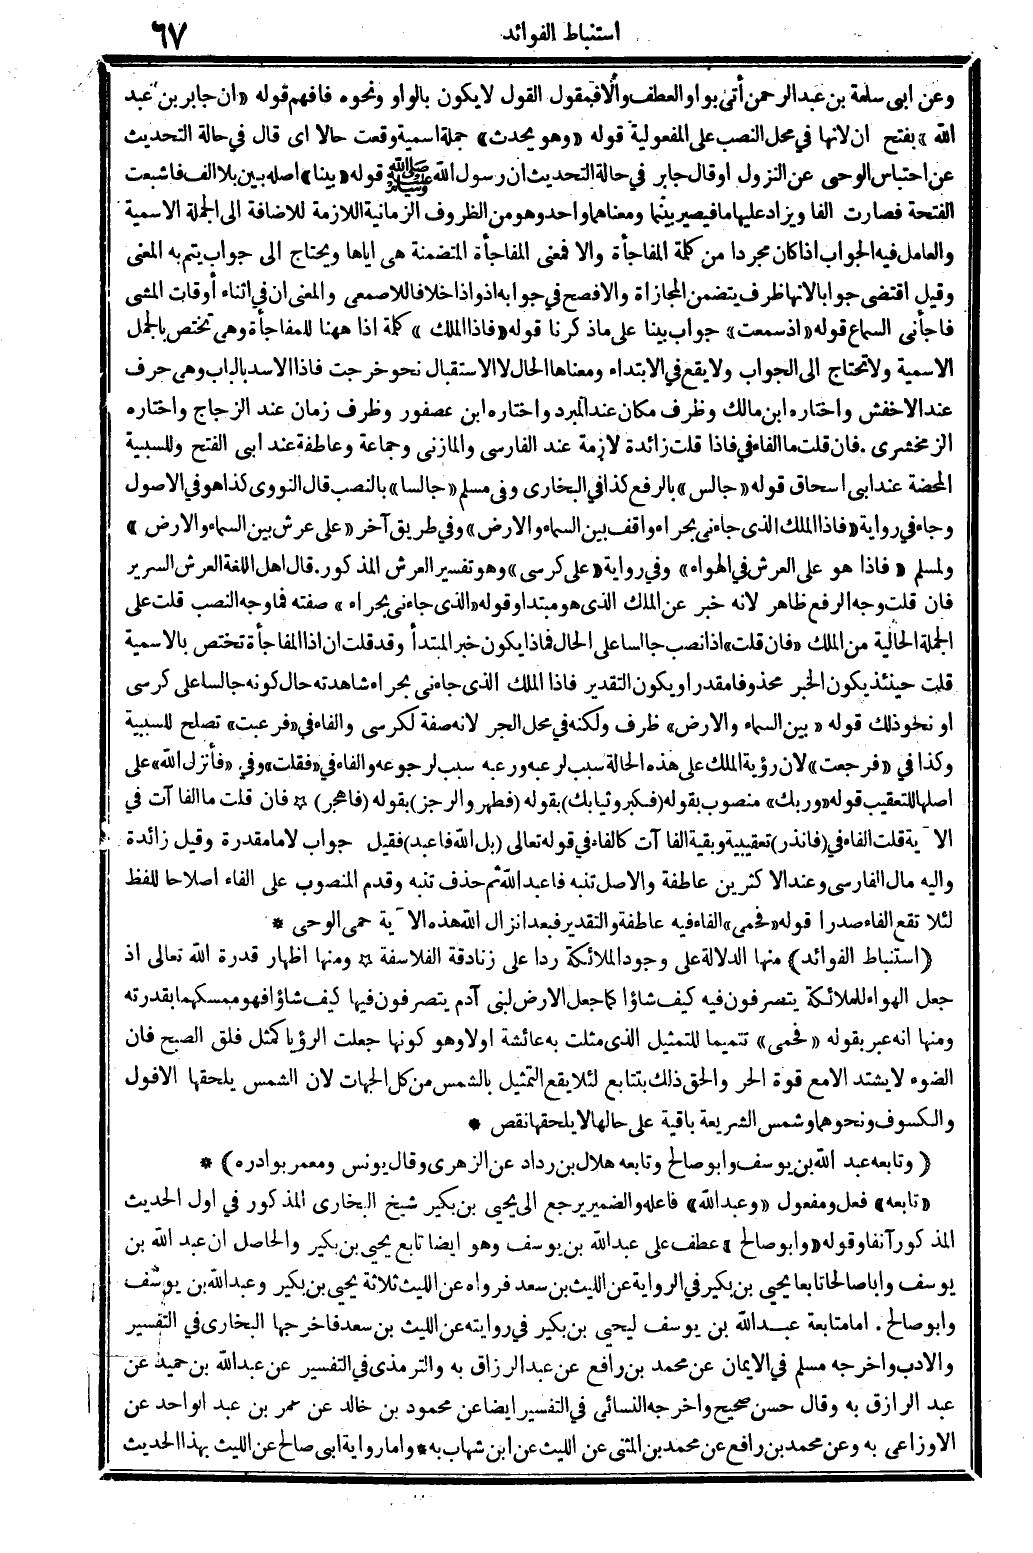 استنباط الفوائد ٦٧
وعن ابى سلمة بن عبد الرحمن أتى بواو العطف والا فمقول القول لا يكون بالواو ونحوه فافهم قوله «ان جابر بن عبد
الله» بفتح ان لانها في محل النصب على المفعولية قوله «وهو يحدث» جملة اسمية وقعت حالا اى قال في حالة التحديث
عن احتباس الوحى عن النزول او قال جابر في حالة التحديث ان رسول الله ﷺ قوله «بينا» اصله بين بلا الف فاشبعت
الفتحة فصارت الفا ويزاد عليها ما فيصير بينما ومعناهما واحد وهو من الظروف الزمانية اللازمة للاضافة الى الجملة الاسمية
والعامل فيه الجواب اذا كان مجردا من كلمة المفاجأة والا فمعنى المفاجأة المتضمنة هى اياها ويحتاج الى جواب يتم به المعنى
وقيل اقتضى جوابا لانها ظرف يتضمن المجازاة والافصح في جوابه اذ واذا خلافا للاصمعى والمعنى ان في اثناء أوقات المشى
فاجأنى السماع قوله «اذ سمعت» جواب بينا على ما ذكرنا قوله «فاذا الملك» كلمة اذا ههنا للمفاجأة وهى تختص بالجمل
الاسمية ولا تحتاج الى الجواب ولا يقع في الابتداء ومعناها الحال لا الاستقبال نحو خرجت فاذا الاسد بالباب وهى حرف
عند الاخفش واختاره ابن مالك وظرف مكان عند المبرد واختاره ابن عصفور وظرف زمان عند الزجاج واختاره
الزمخشرى . فان قلت ما الفاء في فاذا قلت زائدة لازمة عند الفارسى والمازنى وجماعة وعاطفة عند ابى الفتح وللسببية
المحضة عند ابى اسحاق قوله «جالس» بالرفع كذا في البخارى وفى مسلم «جالسا» بالنصب قال النووى كذا هو في الاصول
وجاء في رواية «فاذا الملك الذى جاءنى بحراء واقف بين السماء والارض» وفي طريق آخر «على عرش بين السماء والارض»
ولمسلم «فاذا هو على العرش في الهواء» وفي رواية «على كرسى» وهو تفسير العرش المذكور . قال اهل اللغة العرش السرير
فان قلت وجه الرفع ظاهر لانه خبر عن الملك الذى هو مبتدا وقوله «الذى جاءنى بحراء» صفته فما وجه النصب قلت على
الجملة الحالية من الملك «فان قلت» اذا نصب جالسا على الحال فماذا يكون خبر المبتدأ وقد قلت ان اذا المفاجأة تختص بالاسمية
قلت حينئذ يكون الخبر محذوفا مقدرا ويكون التقدير فاذا الملك الذى جاءنى بحراء شاهدته حال كونه جالسا على كرسى
او نحو ذلك قوله «بين السماء والارض» ظرف ولكنه في محل الجر لانه صفة لكرسى والفاء في «فرعبت» تصلح للسببية
وكذا في «فرجعت» لان رؤية الملك على هذه الحالة سبب لرعبه ورعبه سبب لرجوعه والفاء في «فقلت» وفي «فأنزل الله» على
اصلها للتعقيب قوله «وربك» منصوب بقوله (فكبر وثيابك) بقوله (فطهر والرجز) بقوله (فاهجر) ☆ فان قلت ما الفاآت في
الآية قلت الفاء في (فانذر) تعقيبية وبقية الفاآت كالفاء في قوله تعالى (بل الله فاعبد) فقيل جواب لاما مقدرة وقيل زائدة
واليه مال الفارسى وعند الاكثرين عاطفة والاصل تنبه فاعبد الله ثم حذف تنبه وقدم المنصوب على الفاء اصلاحا للفظ
لئلا تقع الفاء صدرا قوله «فحمى» الفاء فيه عاطفة والتقدير فبعد انزال الله هذه الآية حمى الوحى *
(استنباط الفوائد) منها الدلالة على وجود الملائكة ردا على زنادقة الفلاسفة ☆ ومنها اظهار قدرة الله تعالى اذ
جعل الهواء للملائكة يتصرفون فيه كيف شاؤا كما جعل الارض لبنى آدم يتصرفون فيها كيف شاؤا فهو ممسكهما بقدرته
ومنها انه عبر بقوله «فحمى» تتميما للتمثيل الذى مثلت به عائشة اولا وهو كونها جعلت الرؤيا كمثل فلق الصبح فان
الضوء لا يشتد الا مع قوة الحر والحق ذلك بتتابع لئلا يقع التمثيل بالشمس من كل الجهات لان الشمس يلحقها الافول
والكسوف ونحوهما وشمس الشريعة باقية على حالها لا يلحقها نقص *
(وتابعه عبد الله بن يوسف وابو صالح وتابعه هلال بن رداد عن الزهرى وقال يونس ومعمر بوادره) *
«تابعه» فعل ومفعول «وعبد الله» فاعله والضمير يرجع الى يحيى بن بكير شيخ البخارى المذكور في اول الحديث
المذكور آنفا وقوله «وابو صالح» عطف على عبد الله بن يوسف وهو ايضا تابع يحيى بن بكير والحاصل ان عبد الله بن
يوسف وابا صالح تابعا يحيى بن بكير في الرواية عن الليث بن سعد فرواه عن الليث ثلاثة يحيى بن بكير وعبد الله بن يوسف
وابو صالح . اما متابعة عبد الله بن يوسف ليحيى بن بكير في روايته عن الليث بن سعد فاخرجها البخارى في التفسير
والادب واخرجه مسلم في الايمان عن محمد بن رافع عن عبد الرزاق به والترمذى في التفسير عن عبد الله بن حميد عن
عبد الرازق به وقال حسن صحيح واخرجه النسائى في التفسير ايضا عن محمود بن خالد عن عمر بن عبد الواحد عن
الاوزاعى به وعن محمد بن رافع عن محمد بن المثنى عن الليث عن ابن شهاب به * واما رواية ابى صالح عن الليث بهذا الحديث